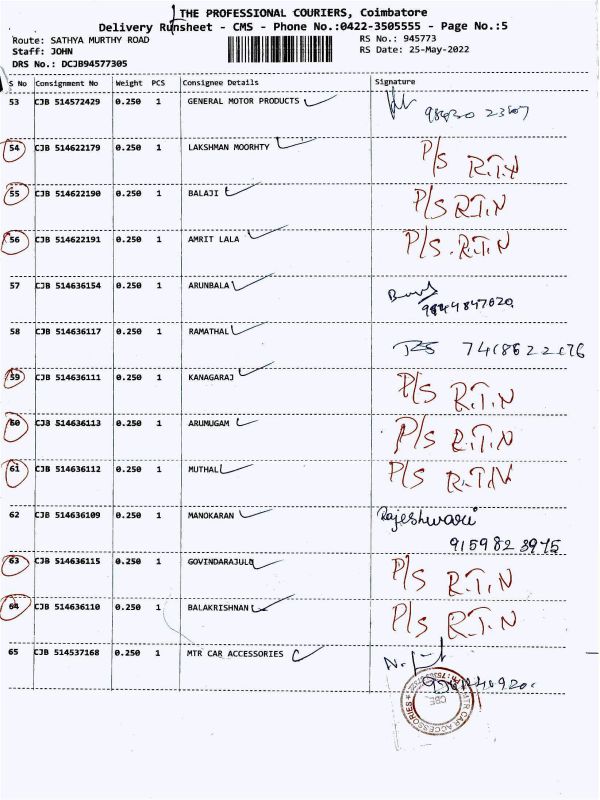 THE PROFESSIONAL COURIERS, Coimbatore
Delivery Runsheet - CMS - Phone No.:0422-3505555 - Page No.:5
Route: SATHYA MURTHY ROAD RS No.: 945773
Staff: JOHN RS Date: 25-May-2022
DRS No.: DCJB94577305
S No Consignment No Weight PCS Consignee Details Signature
53 CJB 514572429 0.250 1 GENERAL MOTOR PRODUCTS
54 CJB 514622179 0.250 1 LAKSHMAN MOORHTY P/S R.T.N
55 CJB 514622190 0.250 1 BALAJI P/S R.T.N
56 CJB 514622191 0.250 1 AMRIT LALA P/S R.T.N
57 CJB 514636154 0.250 1 ARUNBALA
58 CJB 514636117 0.250 1 RAMATHAL
59 CJB 514636111 0.250 1 KANAGARAJ P/S R.T.N
60 CJB 514636113 0.250 1 ARUMUGAM P/S R.T.N
61 CJB 514636112 0.250 1 MUTHAL P/S R.T.N
62 CJB 514636109 0.250 1 MANOKARAN Rajeshwari
9159823975
63 CJB 514636115 0.250 1 GOVINDARAJULO P/S R.T.N
64 CJB 514636110 0.250 1 BALAKRISHNAN P/S R.T.N
65 CJB 514537168 0.250 1 MTR CAR ACCESSORIES
MTR CAR ACCESSORIES
CBE